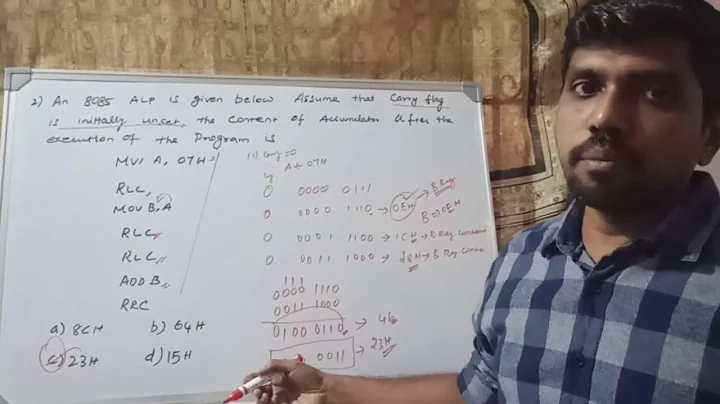 2) An 8085 ALP is given below Assume that Carry flag
is initially unset, the Content of Accumulator after the
execution of the Program is
MVI A, 07H
RLC
MOV B, A
RLC
RLC
ADD B
RRC
a) 8CH b) 64H
c) 23H d) 15H
(1) Cary = 0
A ← 07H
0 0000 0111
0 0000 1110 → 0EH → B Reg
B → 0EH
0 0001 1100 → 1CH → B Reg Content
0 0011 1000 → 38H → B Reg Conte
111
0000 1110
0011 1000
0100 0110 → 46
0011 → 23H